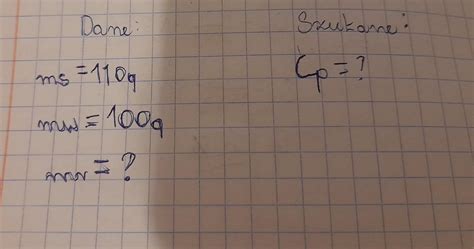 Dane:
Szukane:
ms = 110g
Cp = ?
mw = 100g
mr = ?